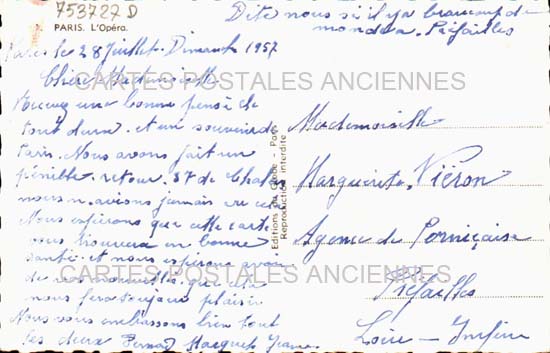 753727 D
Dite nous s'il y a beaucoup de
monde a Préfailles
2. PARIS. L'Opéra.
Paris le 28 Juillet. Dimanche 1957
Chère Mademoiselle
CARTES POSTALES ANCIENNES
Recevez une bonne pensé de
tout deux et un souvenir de
Paris. Nous avons fait un
pénible retour 37 de
nous n'avions jamais vu cela
Nous espérons que cette carte
vous trouvera en bonne
santé et nous espérons avoir
de vos nouvelles que cela
nous fera toujours plaisir
Nous vous embrassons bien tout
les deux
Editions du Globe - Paris
Reproduction interdite
Mademoiselle
Marguerite Viéron
Agence de Pornicaise
CARTES POSTALES ANCIENNES
Préfailles
Loire - Infére